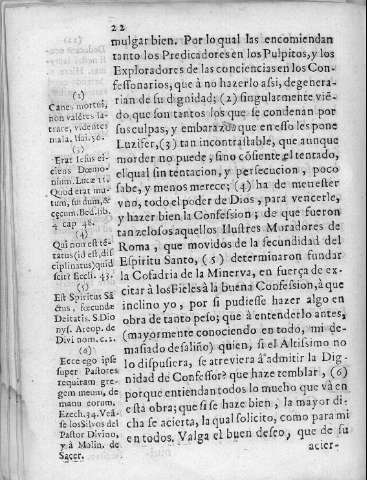 22
mulgar bien. Por lo qual las encomiendan
tanto los Predicadores en los Pulpitos, y los
Exploradores de las conciencias en los Con-
fessonarios, que à no hazerlo assi, degenera-
rian de su dignidad; (2) singularmente viẽ-
do que son tantos los que se condenan por
sus culpas, y embarazo que en esso les pone
Luzifer, (3) tan incontrastable, que aunque
morder no puede, sino cõsiente el tentado,
el qual sin tentacion, y persecucion, poco
sabe, y menos merece; (4) ha de menester
vno, todo el poder de Dios, para vencerle,
y hazer bien la Confession; de que fueron
tan zelosos aquellos Ilustres Moradores de
Roma, que movidos de la fecundidad del
Espiritu Santo, (5) determinaron fundar
la Cofadria de la Minerva, en fuerça de ex-
citar à los Fieles à la buena Confession, à que
inclino yo, por si pudiesse hazer algo en
obra de tanto peso; que à entenderlo antes,
(mayormente conociendo en todo, mi de-
masiado desaliño) quien, si el Altissimo no
lo dispusiera, se atreviera à admitir la Dig-
nidad de Confessor? que haze temblar, (6)
porque entiendan todos lo mucho que và en
esta obra; que si se haze bien, la mayor di-
cha se acierta, la qual solicito, como para mi
en todos. Valga el buen deseo, que de su
acter-
(2)
Canes mortui,
non valẽtes la-
trare, videntes
mala. Isai. 56.
(3)
Erat Iesus ei-
ciens Dœmo-
nium. Lucæ 11.
Quod erat mu-
tum, surdum, &
cęcum. Bed. lib.
4 cap 48.
(4)
Qui non est tẽ-
tatus (id est, dis-
ciplinatus) quid
scit? Eccli. 43.
(5)
Est Spiritus Sã-
ctus, fœcundæ
Deitatis. S. Dio
nys. Areop. de
Divi nom. c. 2.
(6)
Ecce ego ipse
super Pastores
requiram gre-
gem meum, de
manu eorum.
Ezech. 34. Veã-
se los Silvos del
Pastor Divino,
y à Molin. de
Sacer.